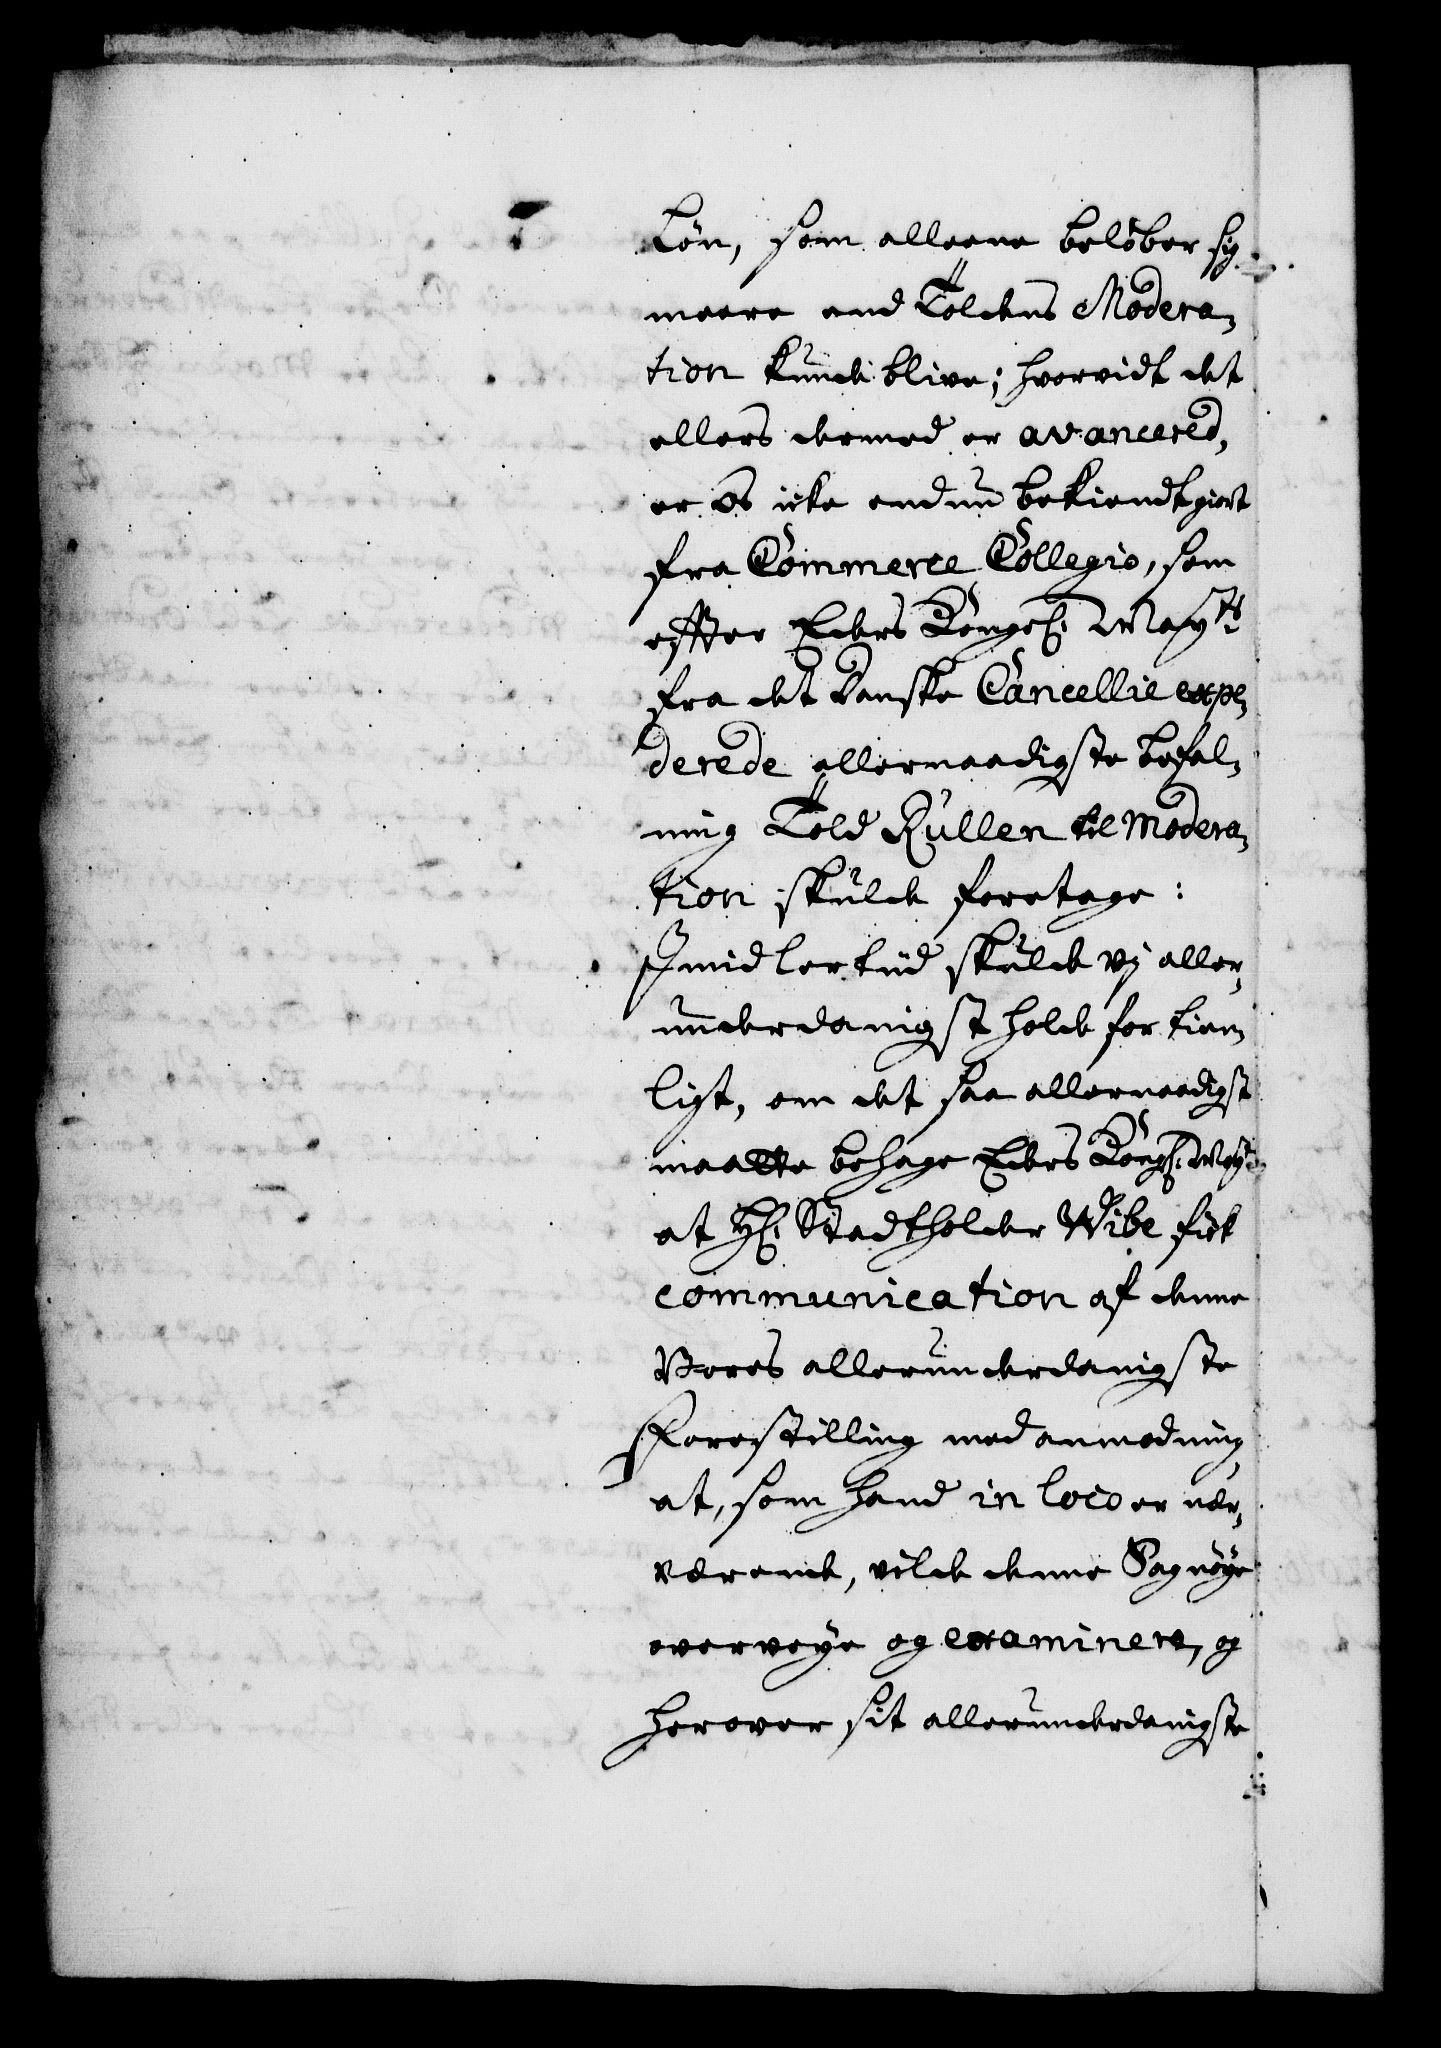 Løn, som alleene beløber sig
meere end Toldens Modera-
tion kunde blive; hvorvidt det
ellers dermed er avancered,
er Os icke endnu bekiendtgiort
fra Commerce Collegio, som
effter Eders Kongel. Mayts
fra det Danske Cancellie expe-
derede allernaadigste befal-
ning Told Rullen til Modera-
tion skulde foretage:
Imidlertiid skulde vj aller-
underdanigst holde for tien-
ligt, om det saa allernaadigst
maatte behage Eders Kongl. Mayt
at Hr. Stadtholder Wibe fick
communication af denne
Vores allerunderdanigste
Forestilling med anmodning
at, som hand in loco er nær-
værende, vilde denne Sag nøye
overveye og examinere, og
herover sit allerunderdanigste